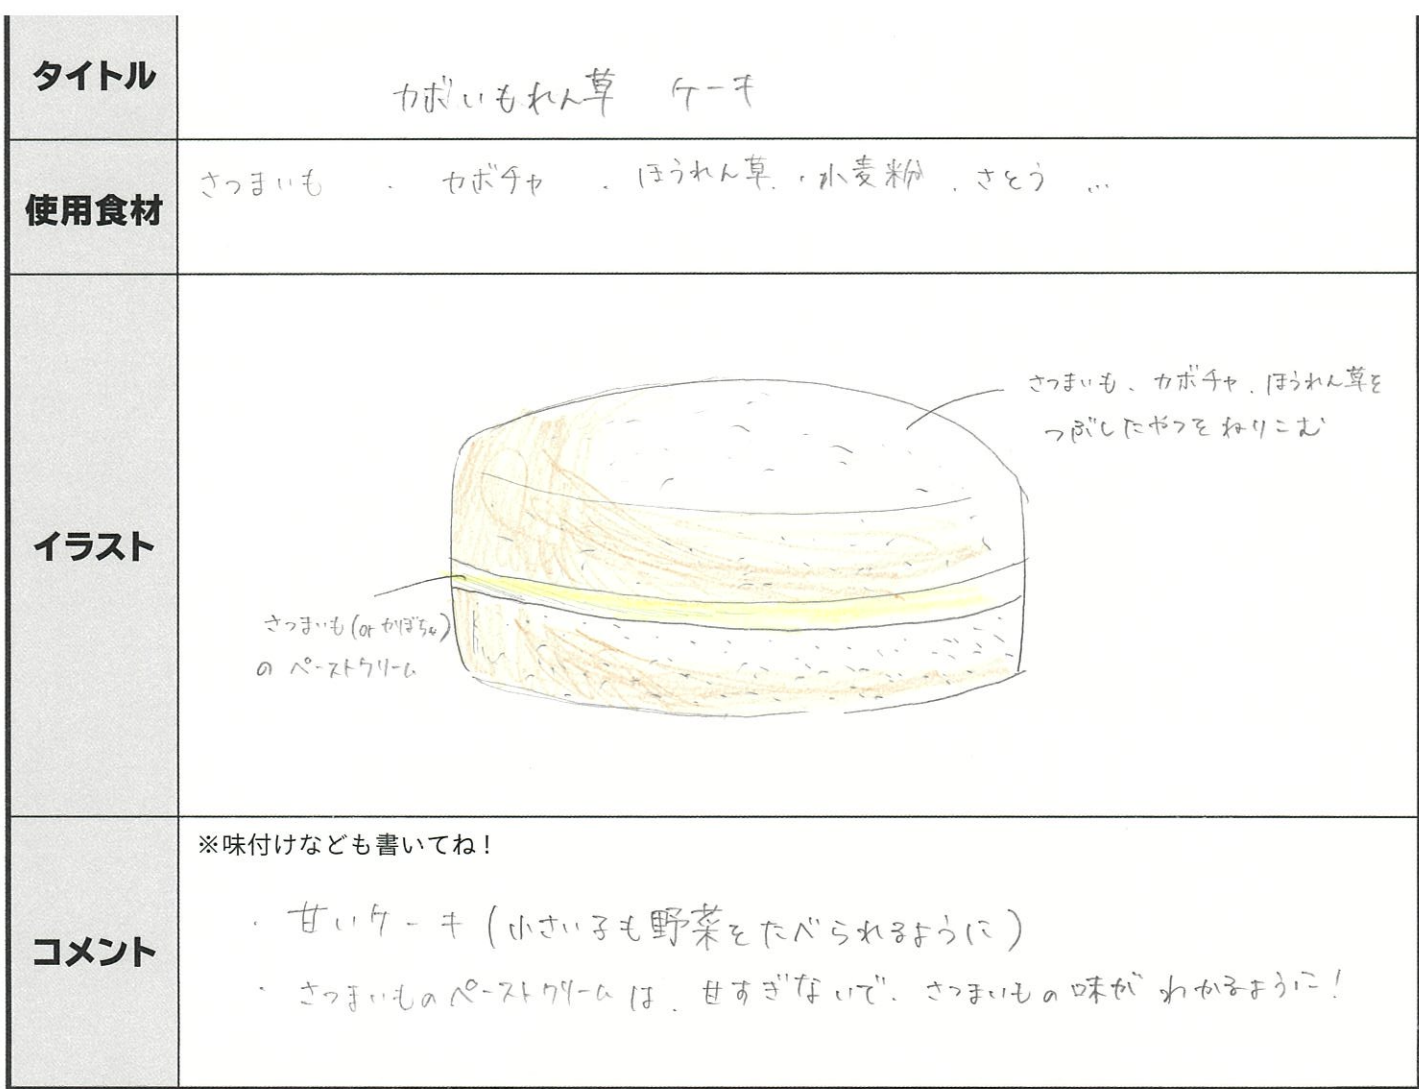 タイトル
カボいもれん草 ケーキ
使用食材
さつまいも ・ カボチャ ・ ほうれん草 ・ 小麦粉 ・ さとう …
イラスト
さつまいも、カボチャ、ほうれん草を
つぶしたやつをねりこむ
さつまいも(or かぼちゃ)
の ペーストクリーム
コメント
※味付けなども書いてね!
・ 甘いケーキ (小さい子も野菜をたべられるように)
・ さつまいものペーストクリームは、甘すぎないで、さつまいもの味がわかるように!